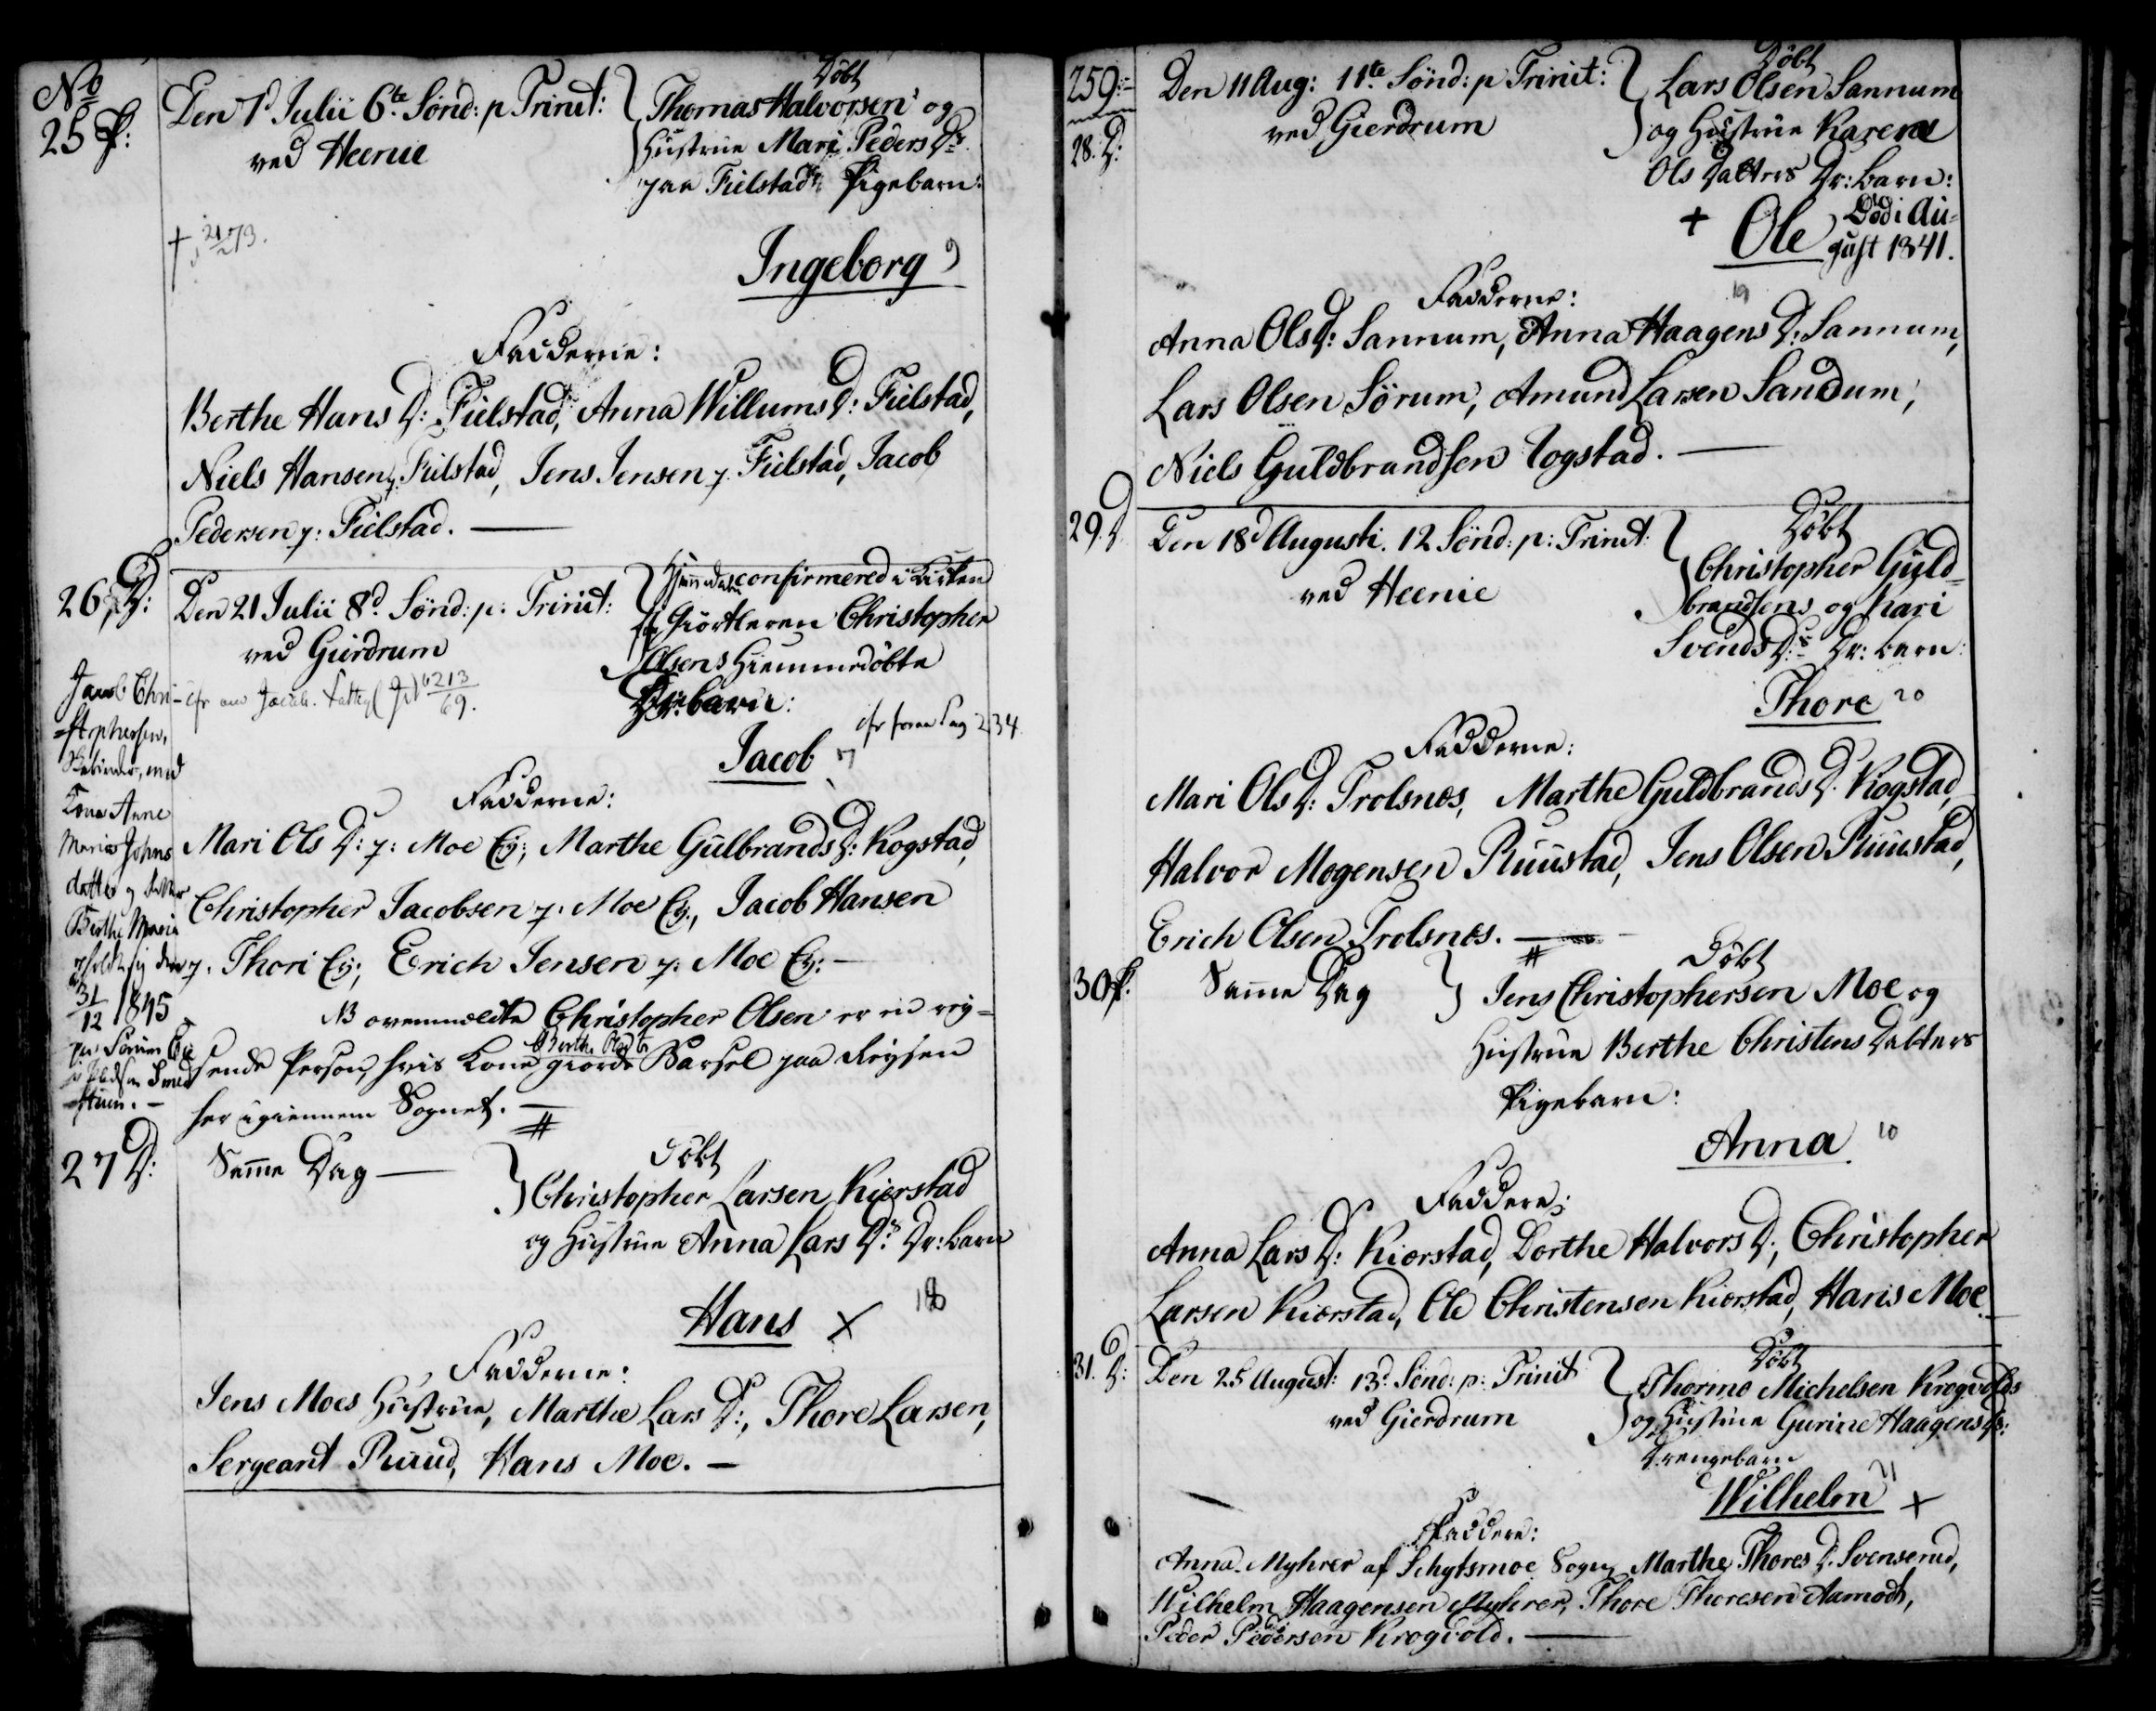 No
25 P:
Den 7de Julii 6te Sönd: p Trinit:
ved Heenie
Döbt
Thomas Halvorsen og
Hustrue Mari Peders Dr
paa Fielstad Pigebarn:
† 21/2 73.
Ingeborg 9
Fadderne:
Berthe Hans D: Fielstad, Anna Willums D: Fielstad,
Niels Hansen p. Fielstad, Jens Jensen p. Fielstad, Jacob
Pedersen p: Fielstad.
26, D:
Den 21 Julii 8d Sönd: p: Trinit:
ved Gierdrum
confirmered i Kirken
Giörtleren Christopher
Olsens Hiemmedöbte
Dr: barn:
Jacob 7
cfr foran Pag 234
Jacob Chri-
stophersen,
med
Kona Anne
Marie Johns
datter og datter
Berthe Marie
31/12 1845
Fadderne:
Mari Ols D: p: Moe Ey; Marthe Gulbrands D: Kogstad,
Christopher Jacobsen p. Moe Ey., Jacob Hansen
p. Thori Ey; Erich Jensen p. Moe Ey:
NB ovenmeldte Christopher Olsen er en rey-
sende Person, hvis Kone giorde Barsel paa Reysen
her igiennem Sognet.
27 D:
Samme Dag
Döbt
Christopher Larsen Kierstad
og Hustrue Anna Lars Dr Dr: barn
Hans × 18
Fadderne:
Jens Moes Hustrue, Marthe Lars D:, Thore Larsen,
Sergeant Ruud, Hans Moe.
259:
28. D:
Den 11 Aug: 11te Sönd: p Trinit:
ved Gierdrum
Döbt
Lars Olsen Sannum
og Hustrue Karen
Ols Datters Dr: barn:
+ Ole
Död i Au-
gust 1841.
19
Fadderne:
Anna Ols D: Sannum, Anna Haagens D: Sannum,
Lars Olsen Sörum, Amund Larsen Sandum,
Niels Guldbrandsen Togstad.
29. D
Den 18d Augusti. 12 Sönd: p: Trinit:
ved Heenie
Döbt
Christopher Guld-
brandsens og Kari
Svends Dr Dr: barn:
Thore 20
Fadderne:
Mari Ols D: Trolsnes, Marthe Guldbrands D. Kogstad,
Halvor Mogensen Ruustad, Jens Olsen Ruustad,
Erich Olsen Trolsnes.
30 P.
Samme Dag
Döbt
Jens Christophersen Moe og
Hustrue Berthe Christens Datters
Pigebarn:
Anna. 10
Faddere:
Anna Lars D: Kiorstad, Dorthe Halvors D:, Christopher
Larsen Kiorstad, Ole Christensen Kiorstad, Hans Moe
31. D:
Den 25 August: 13d Sönd: p: Trinit
ved Gierdrum
Döbt
Thormo Michelsen Krogvolds
og Hustrue Gurine Haagens D:
Drengebarn
Wilhelm 21 ×
Faddere:
Anna Myhrer af Schytsmoe Sogn, Marthe Thores D. Svenserud,
Wilhelm Haagensen Myhrer, Thore Thoresen Aamodt,
Peder Pedersen Krogvold.